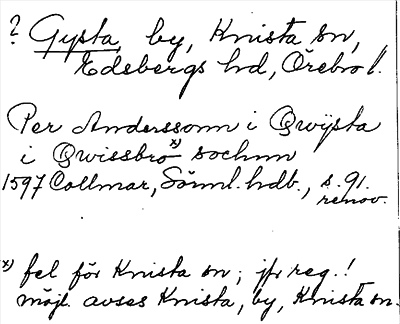 ? Gysta, by, Knista sn,
Edsbergs hd, Örebro l.
Per Anderssonn i Qwijsta
i Qwissbro x) sochnn
1597 Collmar, Sörml. hdb., s. 91.
renov.
x) fel för Knista sn; jfr reg.!
möjl. avses Knista, by, Knista sn.